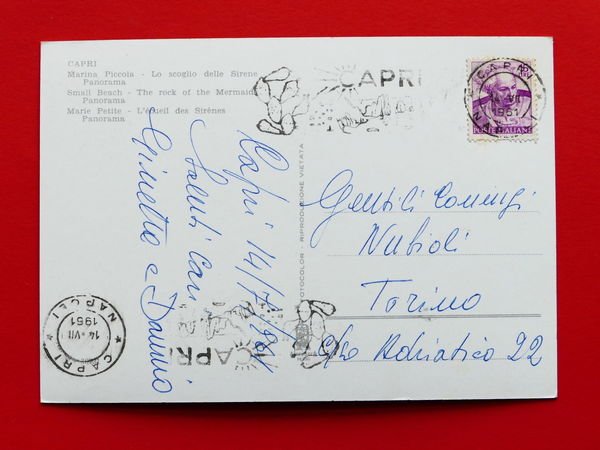 CAPRI
Marina Piccola - Lo scoglio delle Sirene
Panorama
Small Beach - The rock of the Mermaid
Panorama
Marie Petite - L'écueil des Sirènes
Panorama
CAPRI
CAPRI
14 VII
1961
POSTE ITALIANE
FOTOCOLOR - RIPRODUZIONE VIETATA
Capri 14/7/961
Saluti cari
Ginetta e
Gentili Coniugi
Nubioli
Torino
C/so Adriatico 22
CAPRI
NAPOLI
14-VII
1961
* CAPRI *